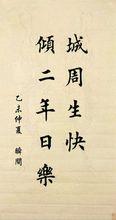 傾城
二周
年生
日快
樂
乙未仲夏 瞬間